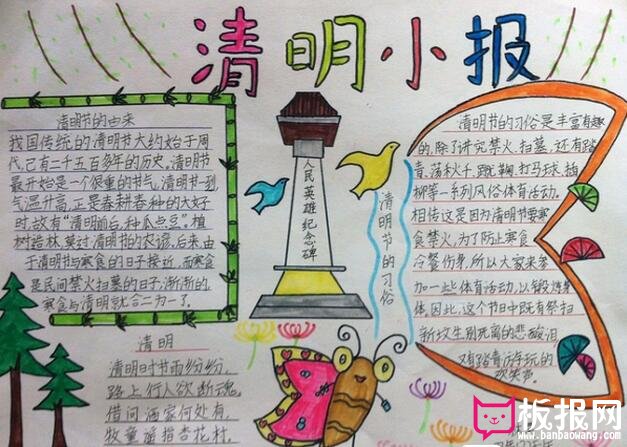 清明小报
清明节的由来
我国传统的清明节大约始于周
代,已有二千五百多年的历史。清明节
最开始是一个很重的节气,清明节一到,
气温升高,正是春耕春种的大好
时,故有"清明前后,种瓜点豆"。植
树造林,莫过清明节的农谚。后来,由
于清明节与寒食的日子接近,而寒食
是民间禁火扫墓的日子,渐渐的,
寒食与清明就合二为一了。
人民英雄纪念碑
清明节的习俗
清明节的习俗是丰富有趣
的,除了讲究禁火、扫墓,还有踏
青、荡秋千、蹴鞠、打马球、插
柳等一系列风俗体育活动。
相传这是因为清明节要寒
食禁火,为了防止寒食
冷餐伤身,所以大家来参
加一些体育活动,以锻炼身
体。因此,这个节日中既有祭扫
新坟生别死离的悲酸泪,
又有踏青游玩的
欢笑声。
清明
清明时节雨纷纷,
路上行人欲断魂。
借问酒家何处有,
牧童遥指杏花村。
板报网
www.banbaowang.com